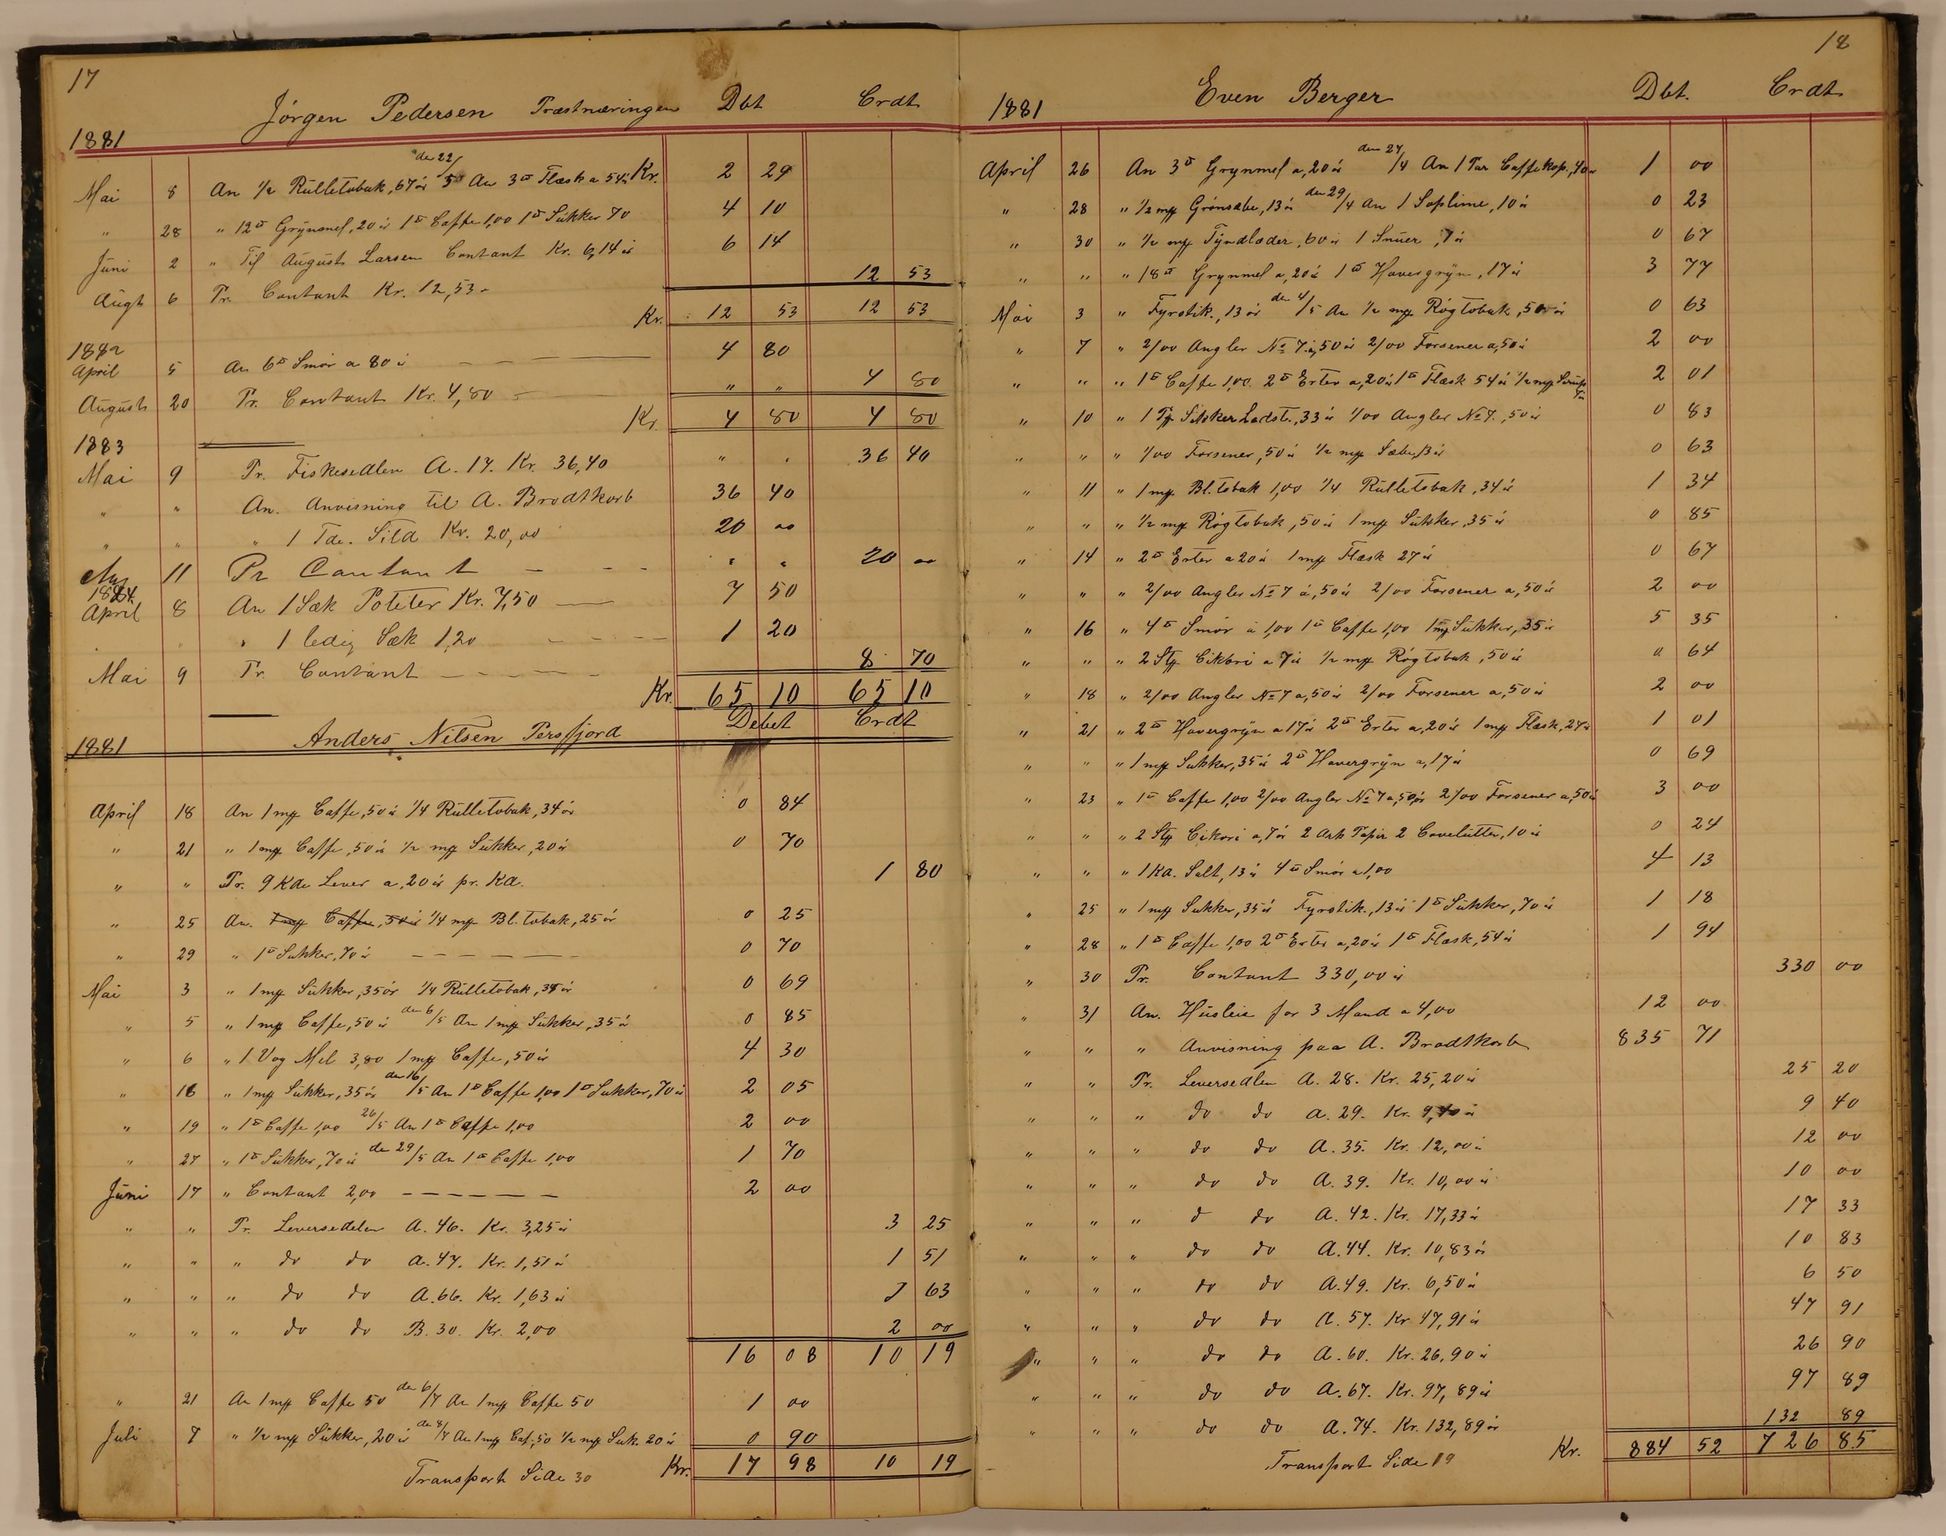 17
Jörgen Pedersen Præstnæringen Dbt Crdt
1881
Mai 8 An 1/2 Rulletobak, 67 ör den 22/5 An 3 ℔ Flæsk a 54 ör Kr. 2 29
" 28 " 12 ℔ Grynmel, 20 ör 1 ℔ Caffe 1,00 1 ℔ Sukker 70 4 10
Juni 2 " Til August Larsen Contant Kr. 6,14 ör 6 14
Augt 6 Pr. Contant Kr. 12,53 - 12 53
Kr. 12 53 12 53
1882
April 5 An 6 ℔ Smör a 80 ör 4 80
August 20 Pr. Contant Kr. 4,80 - " " 4 80
Kr. 4 80 4 80
1883
Mai 9 Pr. Fiskesedlen A. 17. Kr. 36,40 " " 36 40
" " An. Anvisning til A. Brodtkorb 36 40
" " " 1 Tde. Sild Kr. 20,00 20 00
Aug 11 Pr Contant " " 20 00
1884
April 8 An 1 Sæk Poteter Kr. 7,50 7 50
" " " 1 ledig Sæk 1,20 1 20
Mai 9 Pr. Contant 8 70
Kr. 65 10 65 10
1881 Anders Nilsen Persfjord Debet Crdt
April 18 An 1 mg Caffe, 50 ör 1/4 Rulletobak, 34 ör 0 84
" 21 " 1 mg Caffe, 50 ör 1/2 mg Sukker, 20 ör 0 70
" " Pr. 9 Kde Lever a, 20 ör pr. Kd. 1 80
" 25 An. 1 mg Caffe, 50 ör 1/4 mg Bl. tobak, 25 ör 0 25
" 29 " 1 ℔ Sukker, 70 ör 0 70
Mai 3 " 1 mg Sukker, 35 ör 1/4 Rulletobak, 34 ör 0 69
" 5 " 1 mg Caffe, 50 ör den 6/5 An 1 mg Sukker, 35 ör 0 85
" 6 " 1 Vog Mel 3,80 1 mg Caffe, 50 ör 4 30
" 16 " 1 mg Sukker, 35 ör den 16/5 An 1 ℔ Caffe 1,00 1 ℔ Sukker, 70 ör 2 05
" 19 " 1 ℔ Caffe 1,00 26/5 An 1 ℔ Caffe 1,00 2 00
" 27 " 1 ℔ Sukker, 70 ör den 29/5 An 1 ℔ Caffe 1,00 1 70
Juni 17 " Contant 2,00 2 00
" " Pr. Leversedelen A. 46. Kr. 3,25 ör 3 25
" " " do do A. 47. Kr. 1,51 ör 1 51
" " " do do A. 66. Kr. 1,63 ör 1 63
" " " do do B. 30. Kr. 2,00 2 00
16 08 10 19
" 21 An 1 mg Caffe 50 den 6/7 An 1 mg Caffe 50 1 00
Juli 7 " 1/2 mg Sukker, 20 ör den 8/7 An 1 mg Caf. 50 1/2 mg Suk. 20 ör 0 90
Transport Side 30 Kr. 17 98 10 19
18
1881 Even Berger Dbt. Crdt
April 26 An 3 ℔ Grynmel a, 20 ör den 27/4 An 1 Par Caffekop., 40 ör 1 00
" 28 " 1/2 mg Grönsæbe, 13 ör den 29/4 An 1 Soplime, 10 ör 0 23
" 30 " 1/2 mg Tyndloder, 60 ör 1 Snuer, 7 ör 0 67
" " " 18 ℔ Grynmel a, 20 ör 1 ℔ Havergryn, 17 ör 3 77
Mai 3 " Fyrstik., 13 ör den 4/5 An 1/2 mg Rögtobak, 50 ör 0 63
" 7 " 2/00 Angler No 7 a, 50 ör 2/00 Forsener a, 50 ör 2 00
" " " 1 ℔ Caffe 1,00. 2 ℔ Erter a, 20 ör 1 ℔ Flæsk 54 ör 1/2 mg 2 01
" 10 " 1 Sukker 33 ör 1/00 Angler No 7., 50 ör 0 83
" " " 1/00 Forsener, 50 ör 1/2 mg Sæbe, 13 ör 0 63
" 11 " 1 mg Bl. tobak 1,00 1/4 Rulletobak, 34 ör 1 34
" " " 1/2 mg Rögtobak, 50 ör 1 mg Sukker, 35 ör 0 85
" 14 " 2 ℔ Erter a 20 ör 1 mg Flæsk 27 ör 0 67
" " " 2/00 Angler No 7 a, 50 ör 2/00 Forsener a, 50 ör 2 00
" 16 " 4 ℔ Smör a 1,00 1 ℔ Caffe 1,00 1 mg Sukker, 35 ör 5 35
" " " 2 Stg Cikori a 7 ör 1/2 mg Rögtobak, 50 ör 0 64
" 18 " 2/00 Angler No 7 a, 50 ör 2/00 Forsener a, 50 ör 2 00
" 21 " 2 ℔ Havergryn a 17 ör 2 ℔ Erter a, 20 ör 1 mg Flæsk, 27 ör 1 01
" " " 1 mg Sukker, 35 ör 2 ℔ Havergryn a, 17 ör 0 69
" 23 " 1 ℔ Caffe 1,00 2/00 Angler No 7 a, 50 ör 2/00 Forsener a, 50 ör 3 00
" " " 2 Stg Cikori a, 7 ör 2 Ark Papir 2 Covelutter, 10 ör 0 24
" " " 1 Kd. Salt, 13 ör 4 ℔ Smör a 1,00 4 13
" 25 " 1 mg Sukker, 35 ör Fyrstik., 13 ör 1 ℔ Sukker, 70 ör 1 18
" 28 " 1 ℔ Caffe 1,00 2 ℔ Erter a, 20 ör 1 ℔ Flæsk, 54 ör 1 94
" 30 Pr. Contant 330,00 ör 330 00
" 31 An. Husleie for 3 Mand a 4,00 12 00
" " " Anvisning paa A. Brodtkorb 835 71
" " Pr. Leversedlen A. 28. Kr. 25,20 ör 25 20
" " " do do A. 29. Kr. 9,40 ör 9 40
" " " do do A. 35. Kr. 12,00 ör 12 00
" " " do do A. 39. Kr. 10,00 ör 10 00
" " " d do A. 42. Kr. 17,33 ör 17 33
" " " do do A. 44. Kr. 10,83 ör 10 83
" " " do do A. 49. Kr. 6,50 ör 6 50
" " " do do A. 57. Kr 47,91 ör 47 91
" " " do do A. 60. Kr. 26,90 ör 26 90
" " " do do A. 67. Kr. 97,89 ör 97 89
" " " do do A. 74. Kr. 132,89 ör 132 89
Transport Side 19 Kr. 884 52 726 85